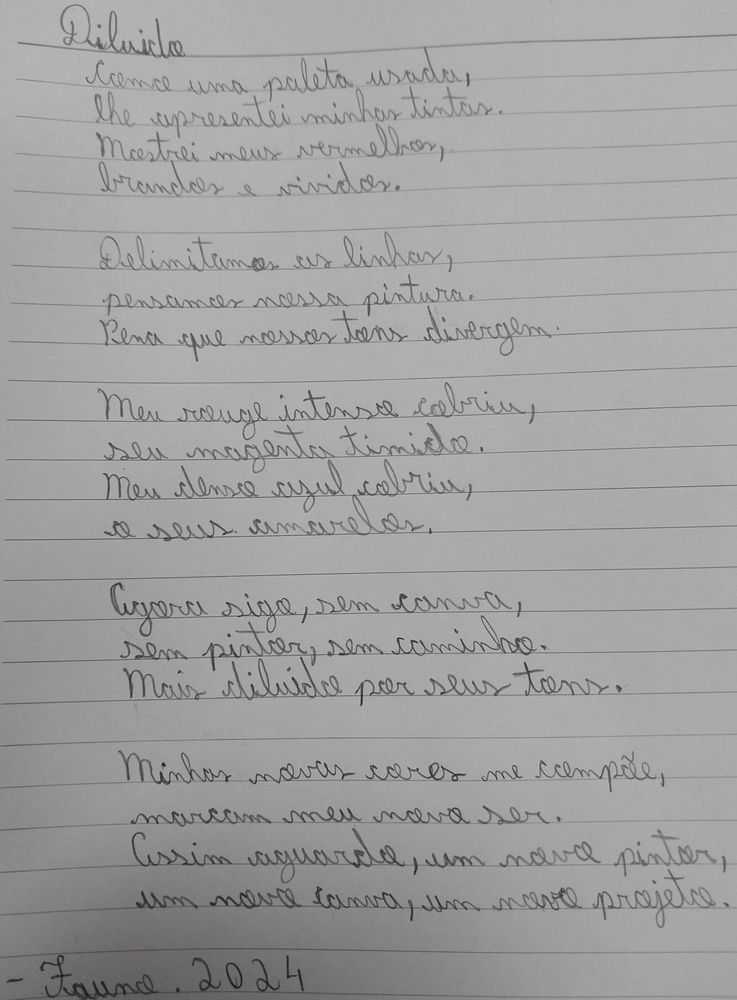 Diluido
Como uma paleta usada,
lhe apresentei minhas tintas.
Mostrei meus vermelhos,
brandos e vividos.
Delimitamos as linhas,
pensamos nossa pintura.
Pena que nossos tons divergem.
Meu rouge intenso cobriu,
seu magenta timido.
Meu denso azul cobriu,
o seus amarelos.
Agora sigo, sem canva,
sem pintor, sem caminho.
Mais diluido por seus tons.
Minhas novas cores me compõe,
marcam meu novo ser.
Assim aguardo, um novo pintor,
um novo canva, um novo projeto.
- Fauno. 2024